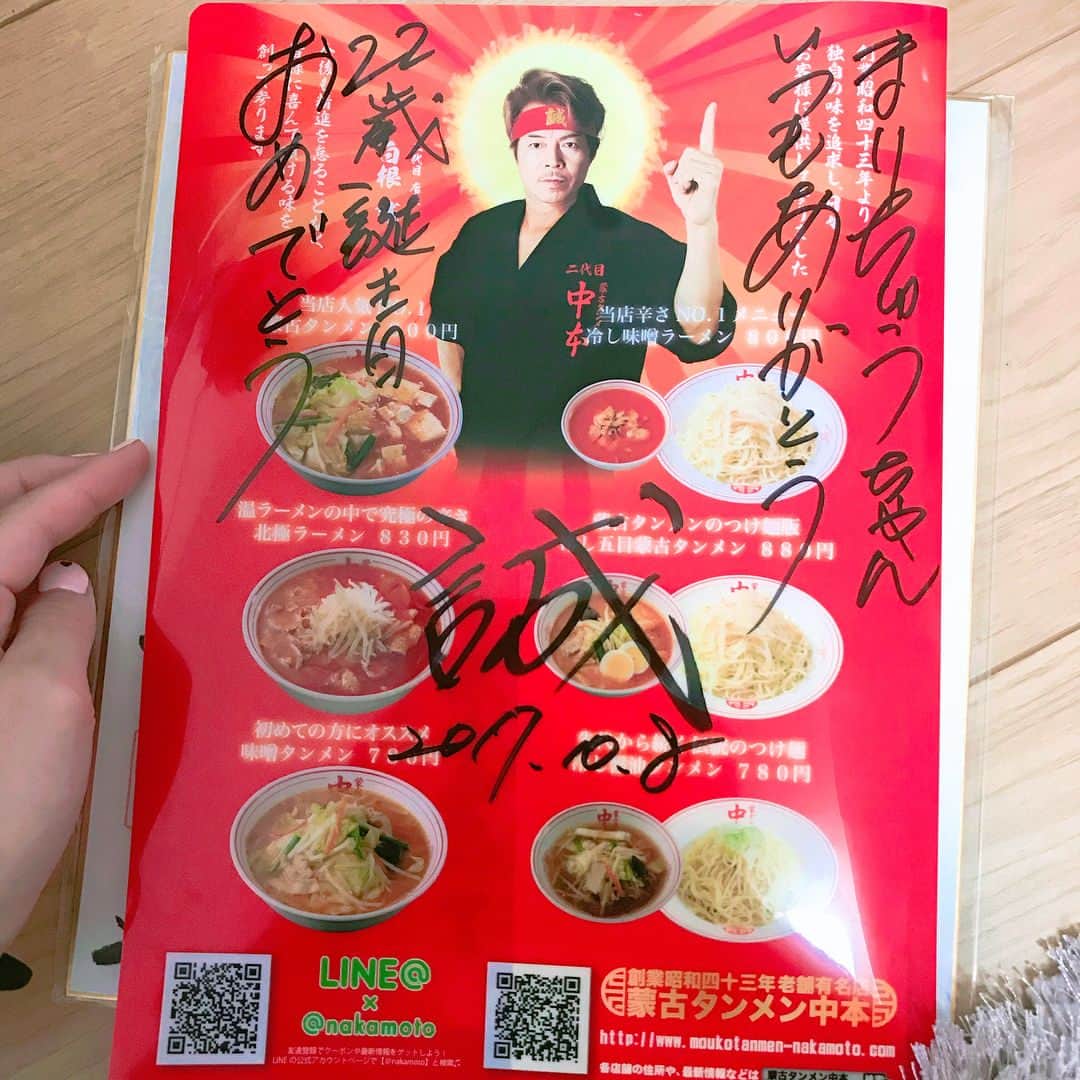 まりちゅうちゃん
いつもありがとう
22歳誕生日
おめでとう
誠
2017.10.8
創業昭和四十三年より
独自の味を追求し、
お客様に提供
した
進を怠ること
に喜ん
ける味を
創って参ります
代目
白根
誠
二代目
蒙古タンメン
中本
当店人気
古タンメン
00円
当店辛さNO.1メニュー
冷し味噌ラーメン 80
円
温ラーメンの中で究極の
北極ラーメン 830円
蒙古タンメンのつけ麺版
し五目蒙古タンメン 88
円
初めての方にオススメ
味噌タンメン 7
0円
から
のつけ麺
メン 780円
LINE@
×
@nakamoto
友達登録でクーポンや最新情報をゲットしよう!
LINEの公式アカウントページで【@nakamoto】と検索♬
創業昭和四十三年老舗有名店
蒙古タンメン中本
http://www.moukotanmen-nakamoto.com
各店舗の住所や、最新情報などは
蒙古タンメン中本